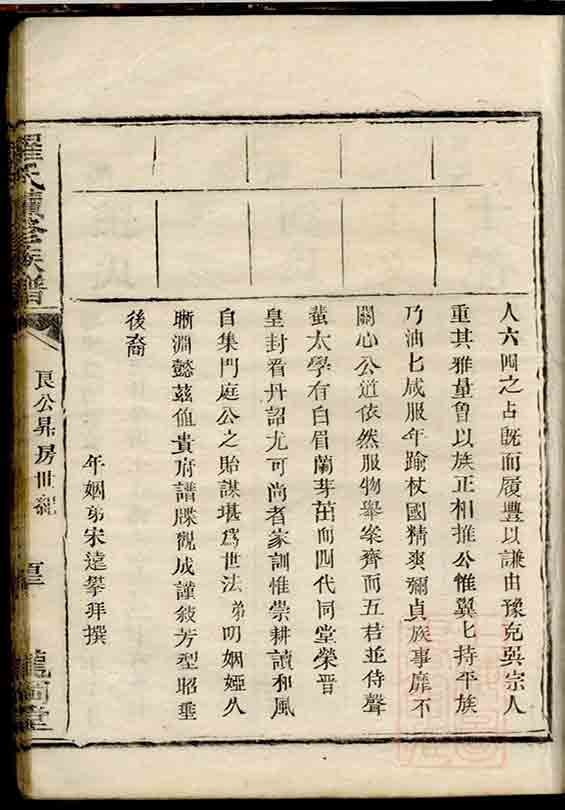 人六四之占旣而履豐以謙由豫克巽宗人
重其雅量魯以族正相推公惟翼匕持平族
乃油匕咸服年踰杖國精爽彌貞族事靡不
關心公道依然服物舉案齊而五桂並侍聲
蜚太學有白眉蘭芽茁而四代同堂榮晉
皇封看丹詔尤可尚者家訓惟崇耕讀和風
自集門庭公之貽謀堪爲世法弟叨姻婭久
晰淵懿茲值貴府譜牒觀成謹敍芳型昭垂
後裔
年姻弟宋達攀拜撰
羅氏續修族譜
良公昇房世紀